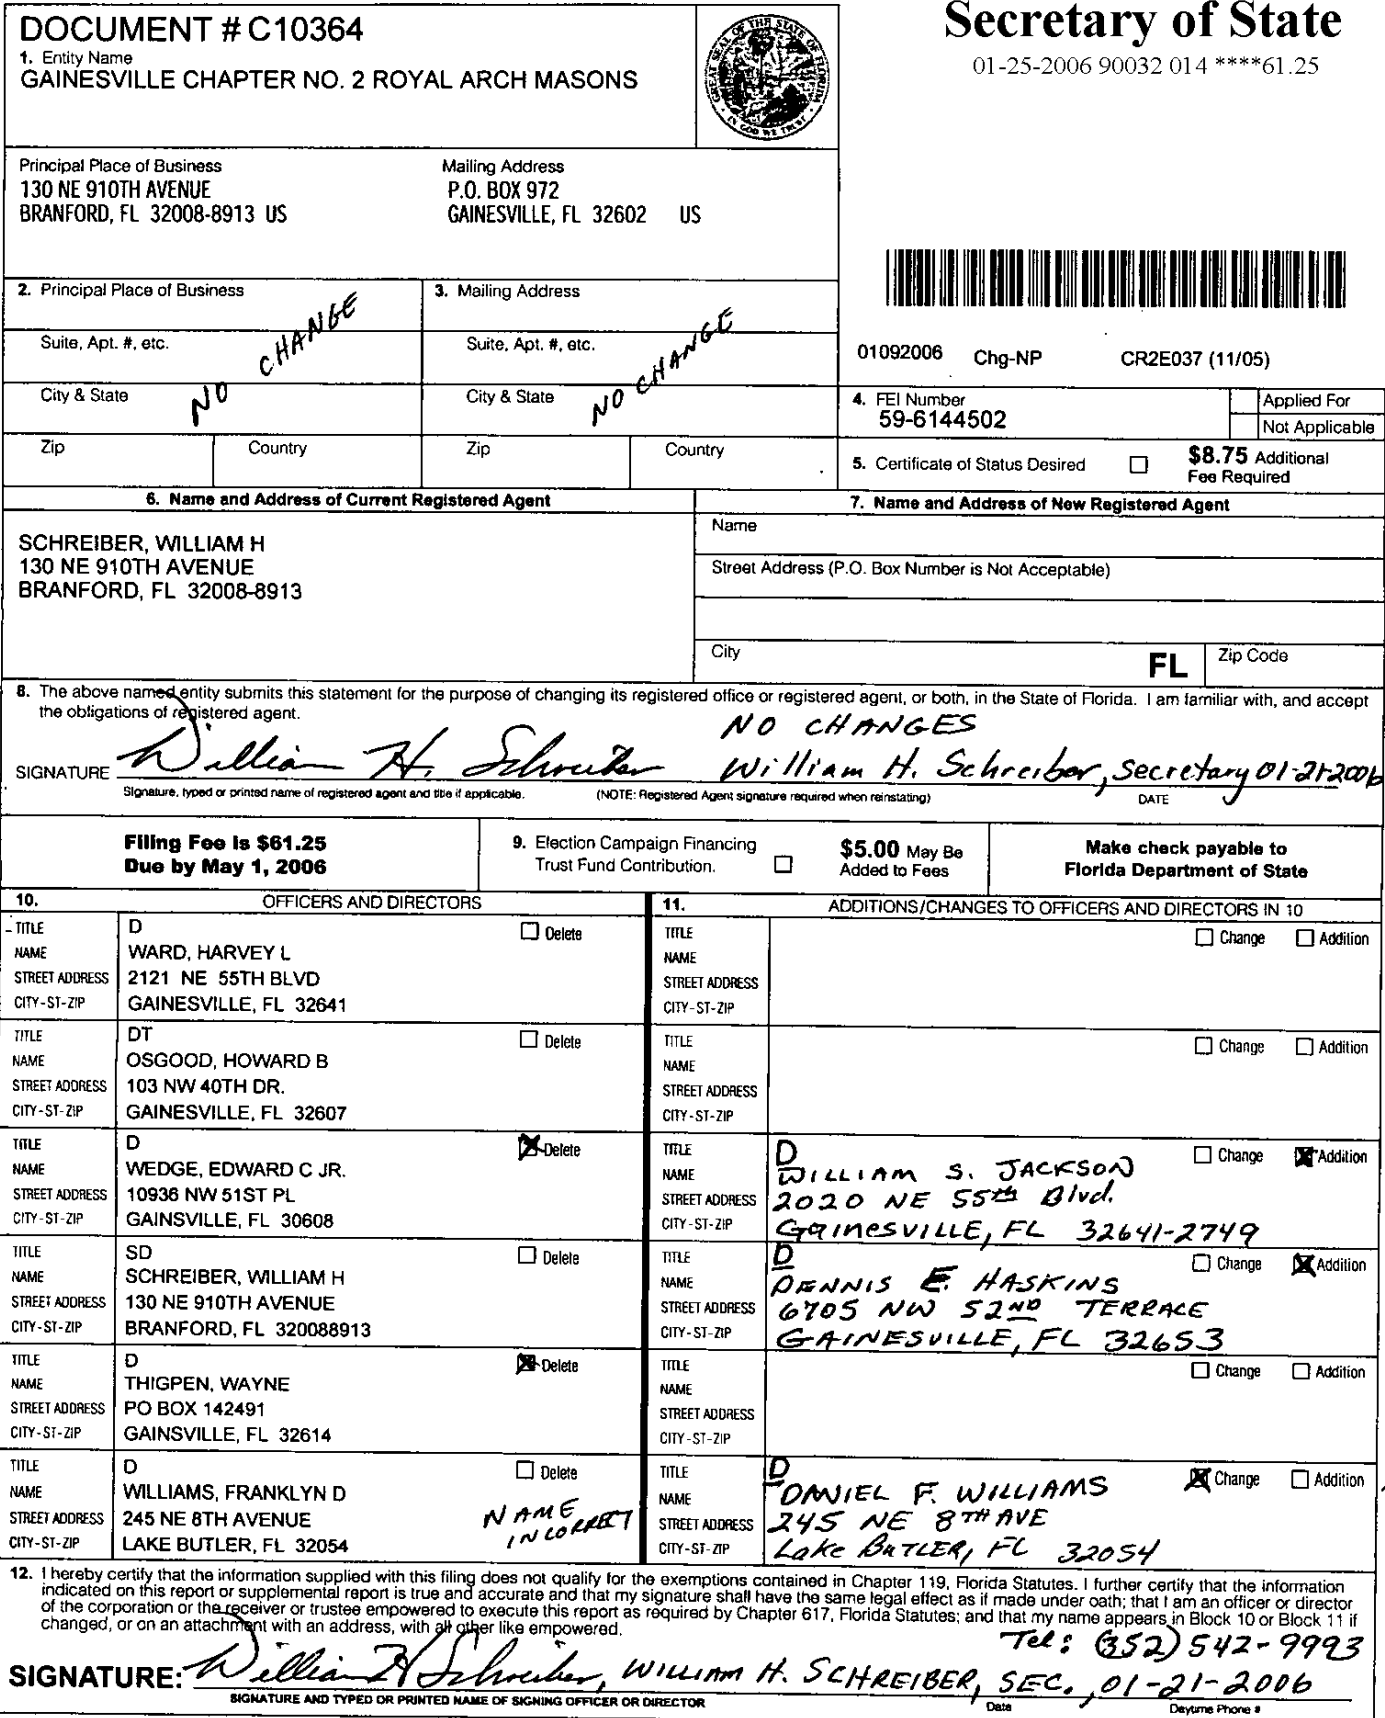 DOCUMENT # C10364
1. Entity Name
GAINESVILLE CHAPTER NO. 2 ROYAL ARCH MASONS
GREAT SEAL OF THE STATE OF FLORIDA
IN GOD WE TRUST
Secretary of State
01-25-2006 90032 014 ****61.25
Principal Place of Business
130 NE 910TH AVENUE
BRANFORD, FL 32008-8913 US
Mailing Address
P.O. BOX 972
GAINESVILLE, FL 32602 US
2. Principal Place of Business
Suite, Apt. #, etc.
City & State
Zip Country
NO CHANGE
3. Mailing Address
Suite, Apt. #, etc.
City & State
Zip Country
NO CHANGE
01092006 Chg-NP CR2E037 (11/05)
4. FEI Number
59-6144502
Applied For
Not Applicable
5. Certificate of Status Desired
$8.75 Additional
Fee Required
6. Name and Address of Current Registered Agent
SCHREIBER, WILLIAM H
130 NE 910TH AVENUE
BRANFORD, FL 32008-8913
7. Name and Address of New Registered Agent
Name
Street Address (P.O. Box Number is Not Acceptable)
City FL Zip Code
8. The above named entity submits this statement for the purpose of changing its registered office or registered agent, or both, in the State of Florida. I am familiar with, and accept
the obligations of registered agent.
NO CHANGES
SIGNATURE William H. Schreiber William H. Schreiber, Secretary 01-21-2006
Signature, typed or printed name of registered agent and title if applicable. (NOTE: Registered Agent signature required when reinstating) DATE
Filing Fee is $61.25
Due by May 1, 2006
9. Election Campaign Financing
Trust Fund Contribution.
$5.00 May Be
Added to Fees
Make check payable to
Florida Department of State
10. OFFICERS AND DIRECTORS
11. ADDITIONS/CHANGES TO OFFICERS AND DIRECTORS IN 10
TITLE D Delete
NAME WARD, HARVEY L
STREET ADDRESS 2121 NE 55TH BLVD
CITY-ST-ZIP GAINESVILLE, FL 32641
TITLE Change Addition
NAME
STREET ADDRESS
CITY-ST-ZIP
TITLE DT Delete
NAME OSGOOD, HOWARD B
STREET ADDRESS 103 NW 40TH DR.
CITY-ST-ZIP GAINESVILLE, FL 32607
TITLE Change Addition
NAME
STREET ADDRESS
CITY-ST-ZIP
TITLE D Delete
NAME WEDGE, EDWARD C JR.
STREET ADDRESS 10936 NW 51ST PL
CITY-ST-ZIP GAINSVILLE, FL 30608
TITLE D Change Addition
NAME WILLIAM S. JACKSON
STREET ADDRESS 2020 NE 55th Blvd.
CITY-ST-ZIP GAINESVILLE, FL 32641-2749
TITLE SD Delete
NAME SCHREIBER, WILLIAM H
STREET ADDRESS 130 NE 910TH AVENUE
CITY-ST-ZIP BRANFORD, FL 320088913
TITLE D Change Addition
NAME DENNIS E. HASKINS
STREET ADDRESS 6705 NW 52ND TERRACE
CITY-ST-ZIP GAINESVILLE, FL 32653
TITLE D Delete
NAME THIGPEN, WAYNE
STREET ADDRESS PO BOX 142491
CITY-ST-ZIP GAINSVILLE, FL 32614
TITLE Change Addition
NAME
STREET ADDRESS
CITY-ST-ZIP
TITLE D Delete
NAME WILLIAMS, FRANKLYN D
STREET ADDRESS 245 NE 8TH AVENUE
CITY-ST-ZIP LAKE BUTLER, FL 32054
NAME
INCORRECT
TITLE D Change Addition
NAME DANIEL F. WILLIAMS
STREET ADDRESS 245 NE 8TH AVE
CITY-ST-ZIP Lake BUTLER, FL 32054
12. I hereby certify that the information supplied with this filing does not qualify for the exemptions contained in Chapter 119, Florida Statutes. I further certify that the information
indicated on this report or supplemental report is true and accurate and that my signature shall have the same legal effect as if made under oath; that I am an officer or director
of the corporation or the receiver or trustee empowered to execute this report as required by Chapter 617, Florida Statutes; and that my name appears in Block 10 or Block 11 if
changed, or on an attachment with an address, with all other like empowered.
Tel: (352) 542-9993
SIGNATURE: William H Schreiber, WILLIAM H. SCHREIBER, SEC., 01-21-2006
SIGNATURE AND TYPED OR PRINTED NAME OF SIGNING OFFICER OR DIRECTOR Date Daytime Phone #